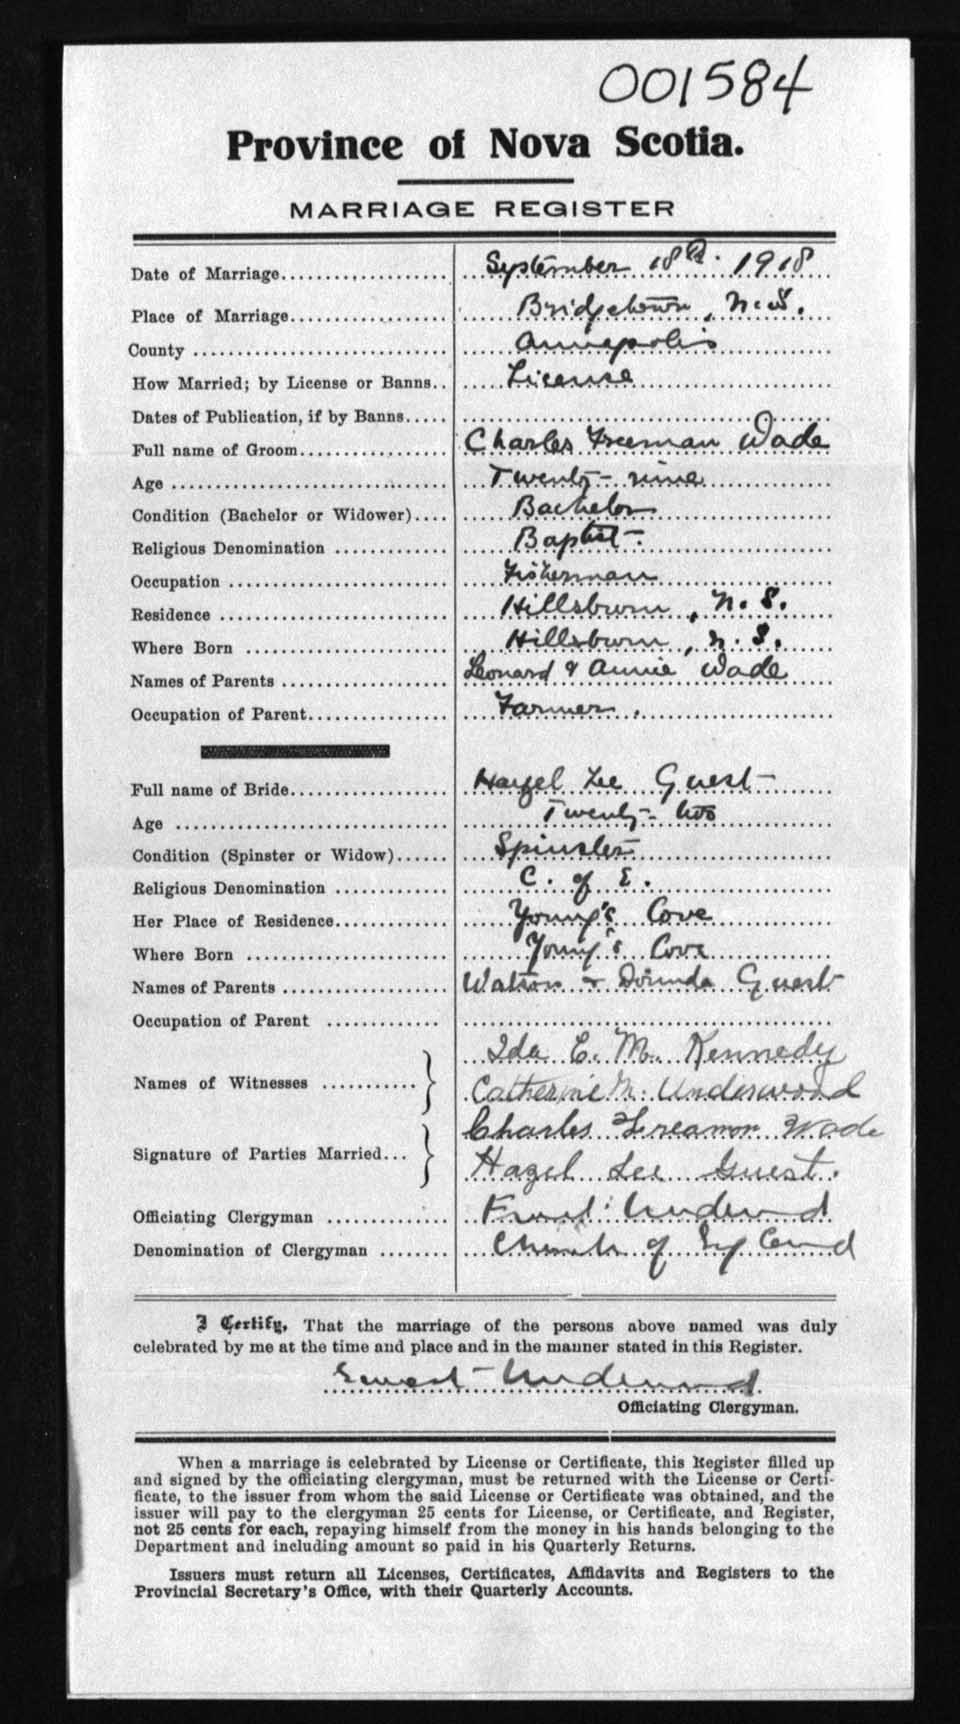 001584
Province of Nova Scotia.
MARRIAGE REGISTER
Date of Marriage.................... September 18th. 1918
Place of Marriage................... Bridgetown, N.S.
County .............................. Annapolis
How Married; by License or Banns.. License
Dates of Publication, if by Banns.....
Full name of Groom.................. Charles Freeman Wade
Age ................................. Twenty-nine
Condition (Bachelor or Widower).... Bachelor
Religious Denomination ............. Baptist
Occupation .......................... Fisherman
Residence ........................... Hillsburn, N.S.
Where Born ......................... Hillsburn, N.S.
Names of Parents .................... Leonard & Annie Wade
Occupation of Parent................. Farmer.
Full name of Bride................... Hazel Lee Guest
Age ................................. Twenty-two
Condition (Spinster or Widow)...... Spinster
Religious Denomination ............. C. of E.
Her Place of Residence.............. Young's Cove
Where Born ......................... Young's Cove
Names of Parents .................... Watson & Dorinda Guest
Occupation of Parent ...............
Names of Witnesses ........... } Ida E. M. Kennedy
Catherine M. Underwood
Signature of Parties Married... } Charles Freamon Wade
Hazel Lee Guest.
Officiating Clergyman ............... Underwood
Denomination of Clergyman ........ Church of England
I Certify, That the marriage of the persons above named was duly
celebrated by me at the time and place and in the manner stated in this Register.
Ernest Underwood
Officiating Clergyman.
When a marriage is celebrated by License or Certificate, this Register filled up
and signed by the officiating clergyman, must be returned with the License or Certi-
ficate, to the issuer from whom the said License or Certificate was obtained, and the
issuer will pay to the clergyman 25 cents for License, or Certificate, and Register,
not 25 cents for each, repaying himself from the money in his hands belonging to the
Department and including amount so paid in his Quarterly Returns.
Issuers must return all Licenses, Certificates, Affidavits and Registers to the
Provincial Secretary's Office, with their Quarterly Accounts.